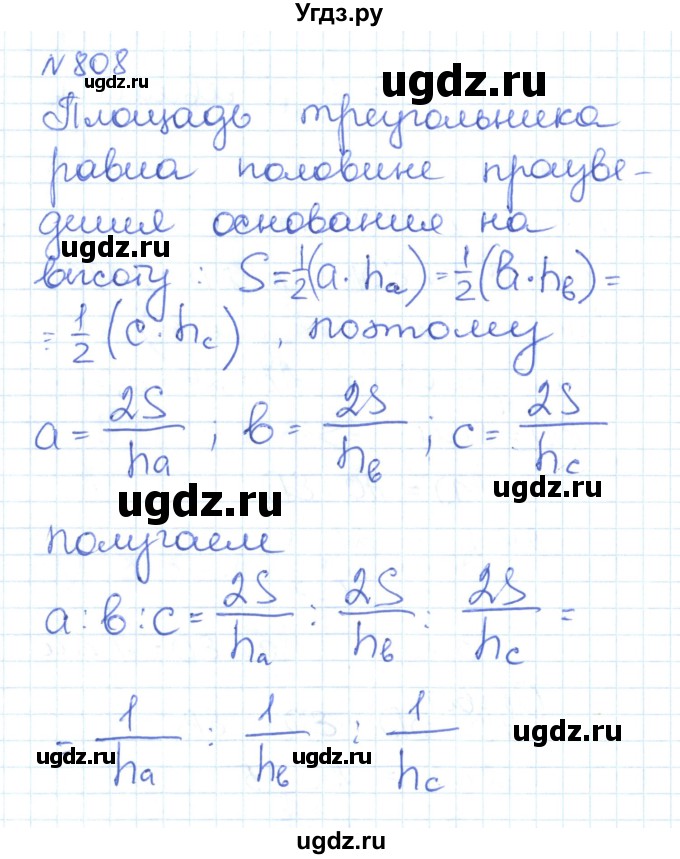 Угдз.ру
N 808
ugdz.ru
ugdz.ru
Площадь треугольника
равна половине произве-
дения основания на
ugdz.ru
высоту : S = 1/2 (a · hₐ) = 1/2 (в · hв) =
ugdz.ru
= 1/2 (c · h_c) , поэтому
a = 2S/hₐ ; в = 2S/hв ; c = 2S/h_c
ugdz.ru
ugdz.ru
получаем
a : в : c = 2S/hₐ : 2S/hв : 2S/h_c =
= 1/hₐ : 1/hв : 1/h_c
ugdz.ru
ugdz.ru
ugdz.ru
ugdz.ru